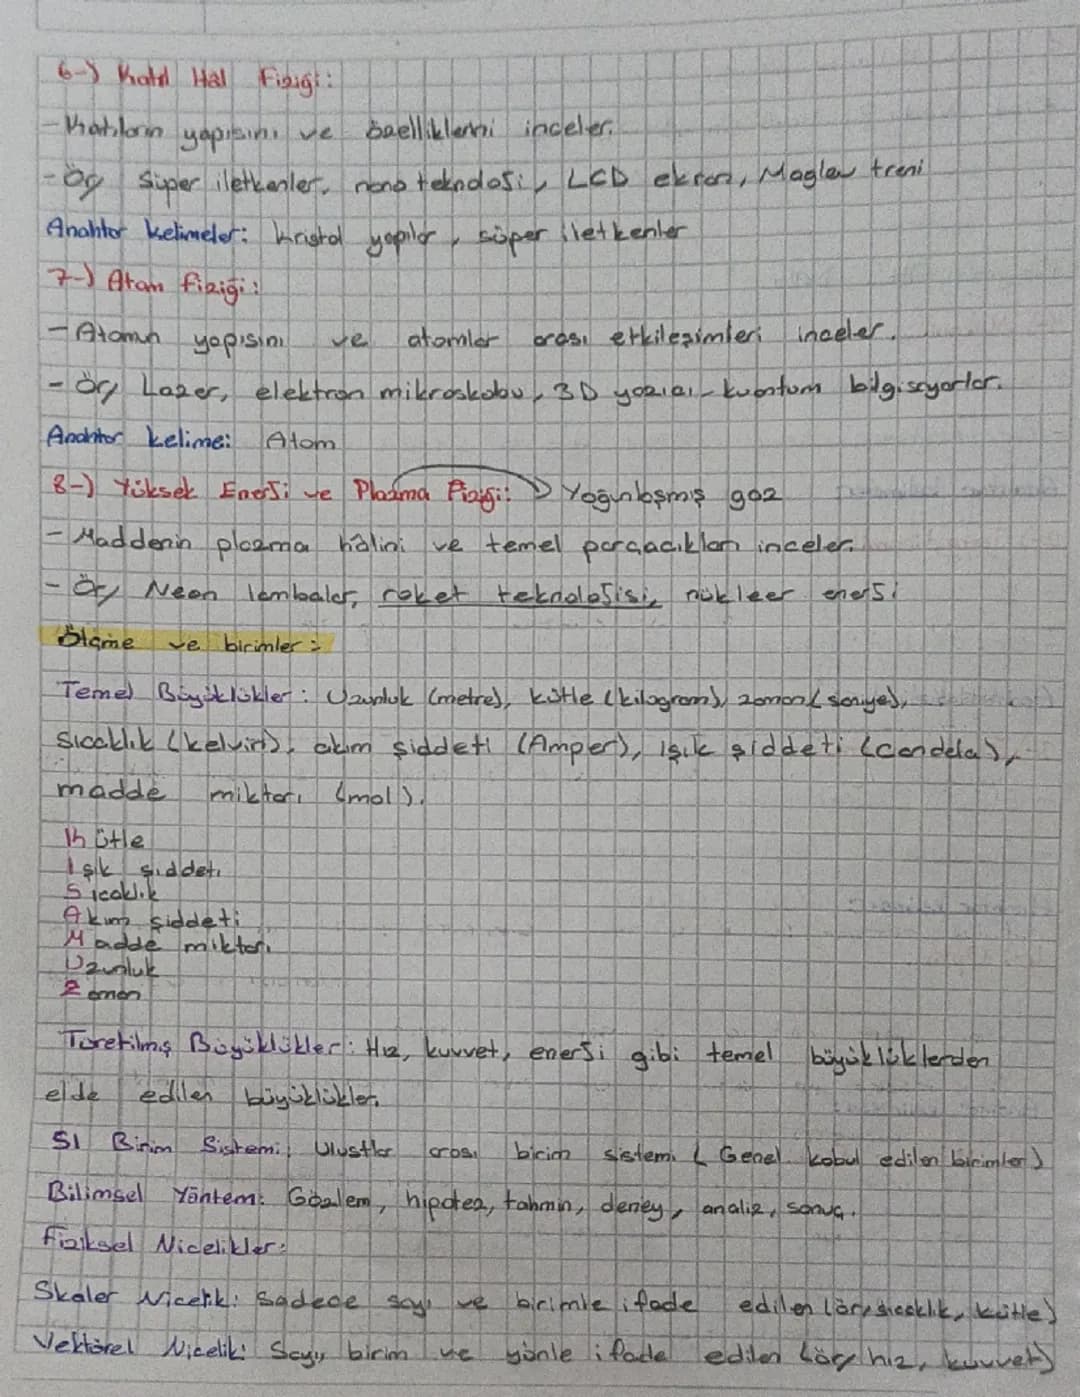 6-) Katı Hal Fiziği:
- Katıların yapısını ve özelliklerini inceler.
- Ör/ Süper iletkenler, nano teknoloji, LCD ekran, Maglev treni
Anahtar kelimeler: kristal yapılar, süper iletkenler
7-) Atom fiziği:
- Atomun yapısını ve atomlar arası etkileşimleri inceler.
- Ör/ Lazer, elektron mikroskobu, 3D yazıcı, kuantum bilgisayarlar.
Anahtar kelime: Atom
8-) Yüksek Enerji ve Plazma Fiziği: → Yoğunlaşmış gaz
- Maddenin plazma hâlini ve temel parçacıkları inceler.
- Ör/ Neon lambalar, roket teknolojisi, nükleer enerji
Ölçme ve birimler:
Temel Büyüklükler: Uzunluk (metre), kütle (kilogram), zaman (saniye),
sıcaklık (kelvin), akım şiddeti (Amper), ışık şiddeti (candela),
madde miktarı (mol).
Kütle
Işık şiddeti
Sıcaklık
Akım şiddeti
Madde miktarı
Uzunluk
Zaman
Türetilmiş Büyüklükler: Hız, kuvvet, enerji gibi temel büyüklüklerden
elde edilen büyüklükler.
SI Birim Sistemi: Uluslar arası birim sistemi (Genel kabul edilen birimler)
Bilimsel Yöntem: Gözlem, hipotez, tahmin, deney, analiz, sonuç.
Fiziksel Nicelikler:
Skaler Nicelik: Sadece sayı ve birimle ifade edilen (ör/ sıcaklık, kütle)
Vektörel Nicelik: Sayı, birim ve yönle ifade edilen (ör/ hız, kuvvet)